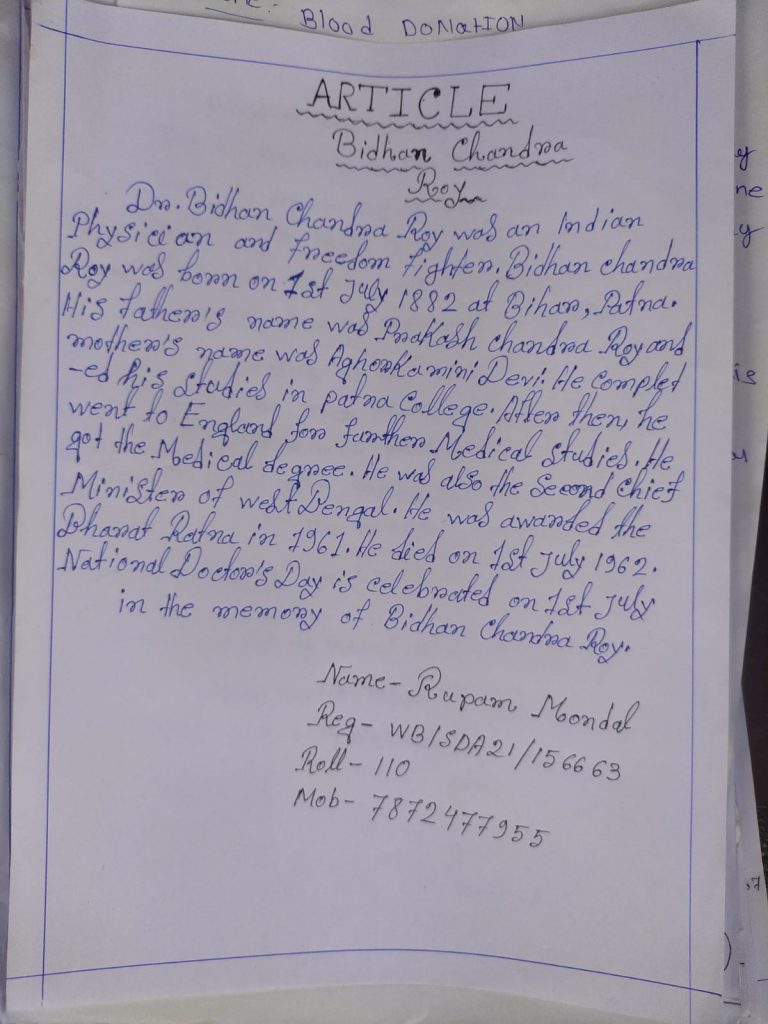 Blood DoNatION
ARTICLE
Bidhan Chandra
Roy
Dr. Bidhan Chandra Roy was an Indian
Physician and freedom fighter. Bidhan chandra
Roy was born on 1st July 1882 at Bihar, Patna.
His father's name was Prakash chandra Roy and
mother's name was Aghorkamini Devi. He complet
-ed his studies in patna College. After then, he
went to England for farther Medical studies. He
got the Medical degree. He was also the Second Chief
Minister of west Bengal. He was awarded the
Bharat Ratna in 1961. He died on 1st July 1962.
National Doctor's Day is celebrated on 1st July
in the memory of Bidhan Chandra Roy.
Name- Rupam Mondal
Reg- WB/SDA21/156663
Roll- 110
Mob- 7872477955